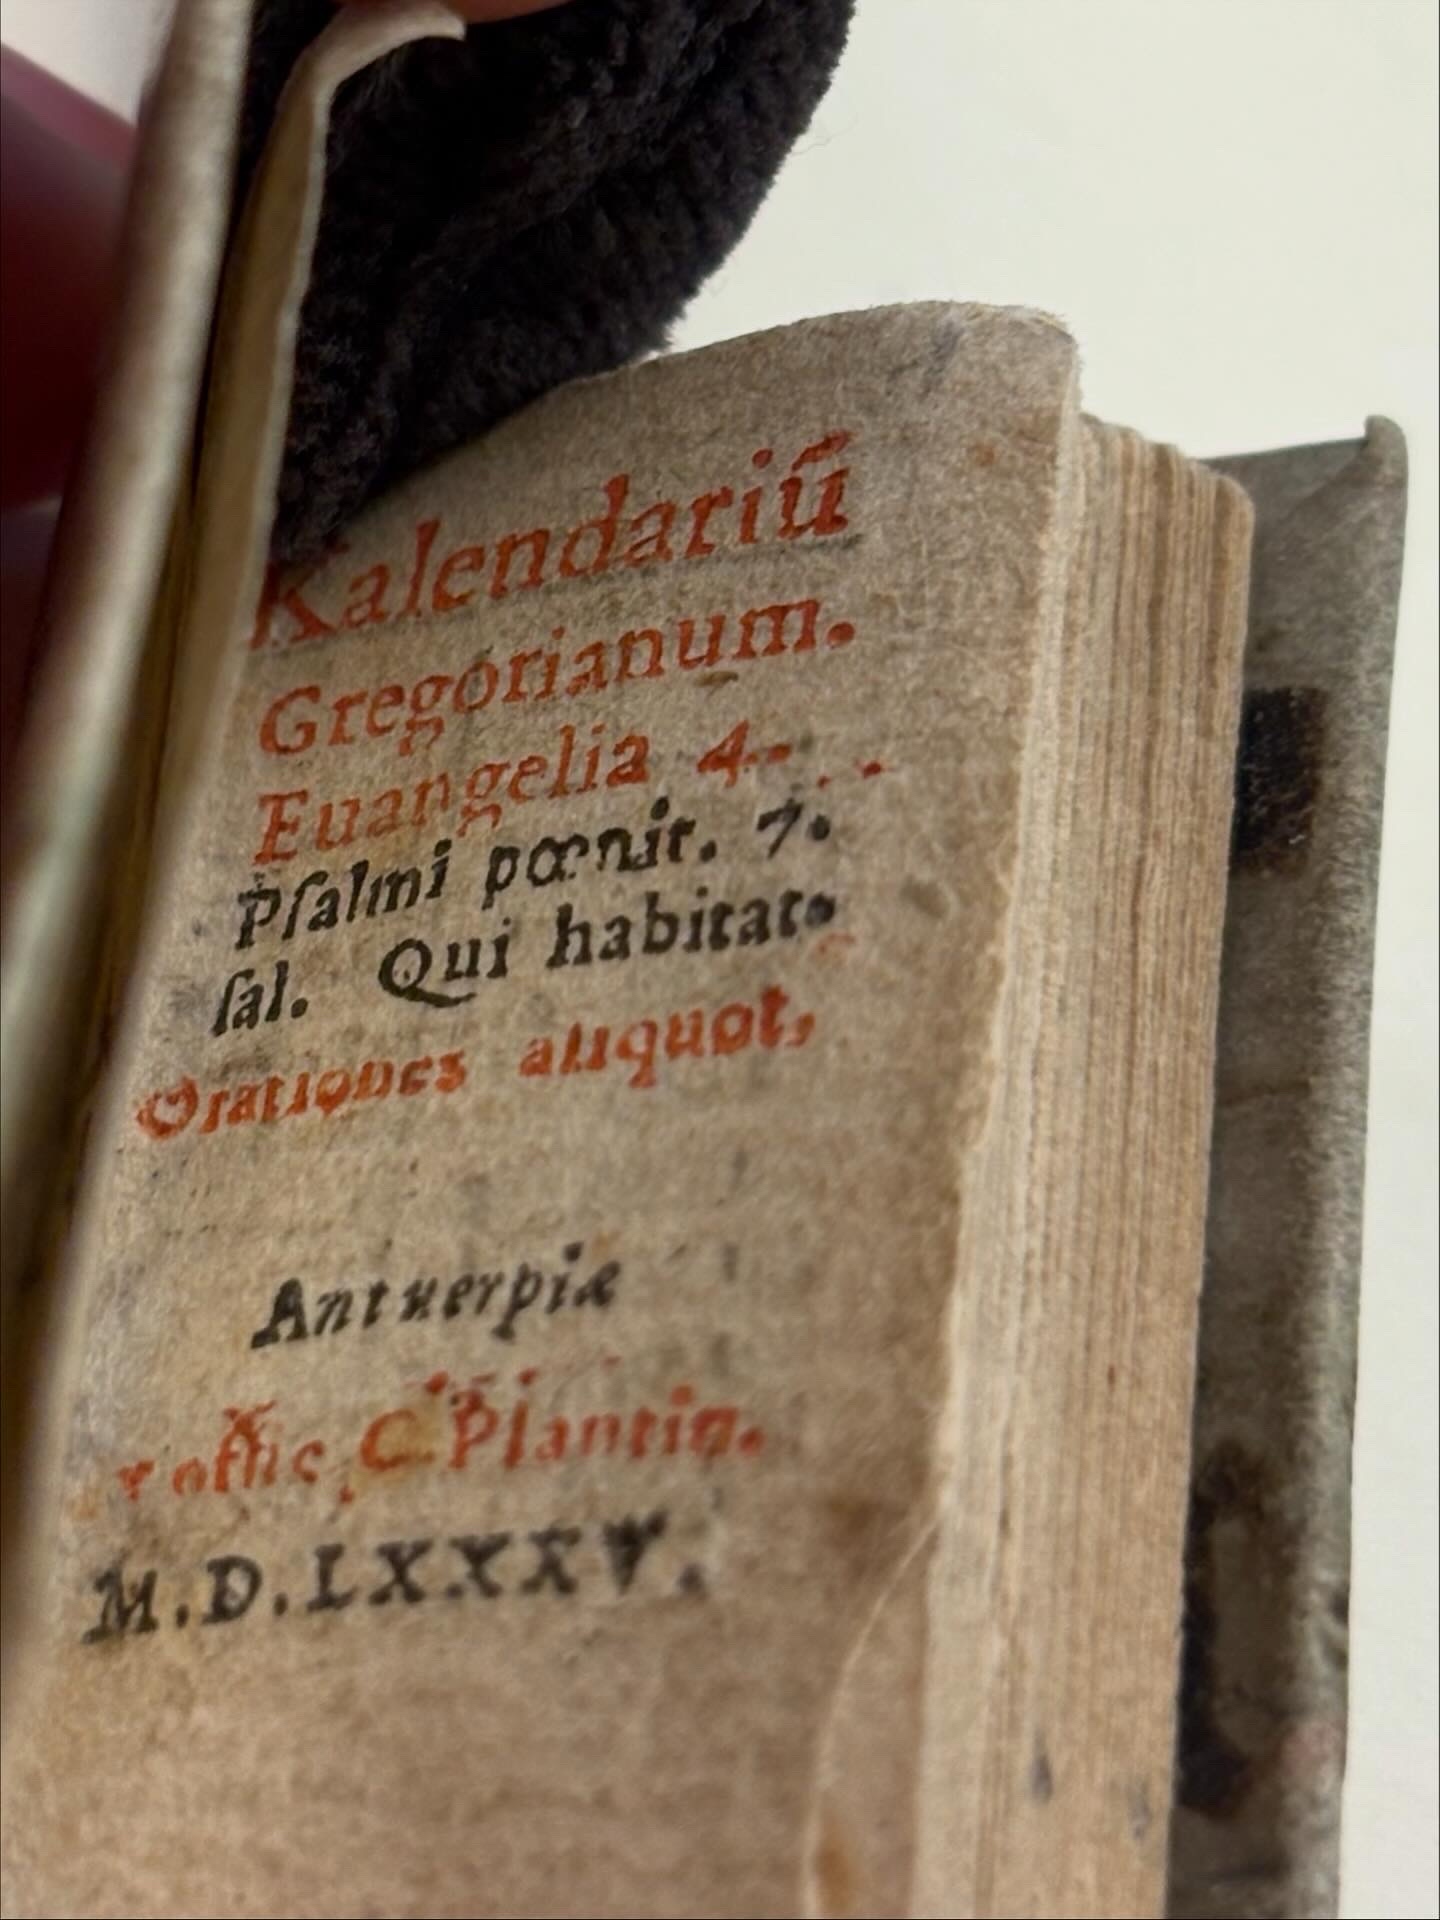 Kalendariū
Gregorianum.
Euangelia 4.
Pſalmi pœnit. 7.
ſal. Qui habitat.
Orationes aliquot,
Antuerpiæ
offic C. Plantin.
M.D.LXXXV.